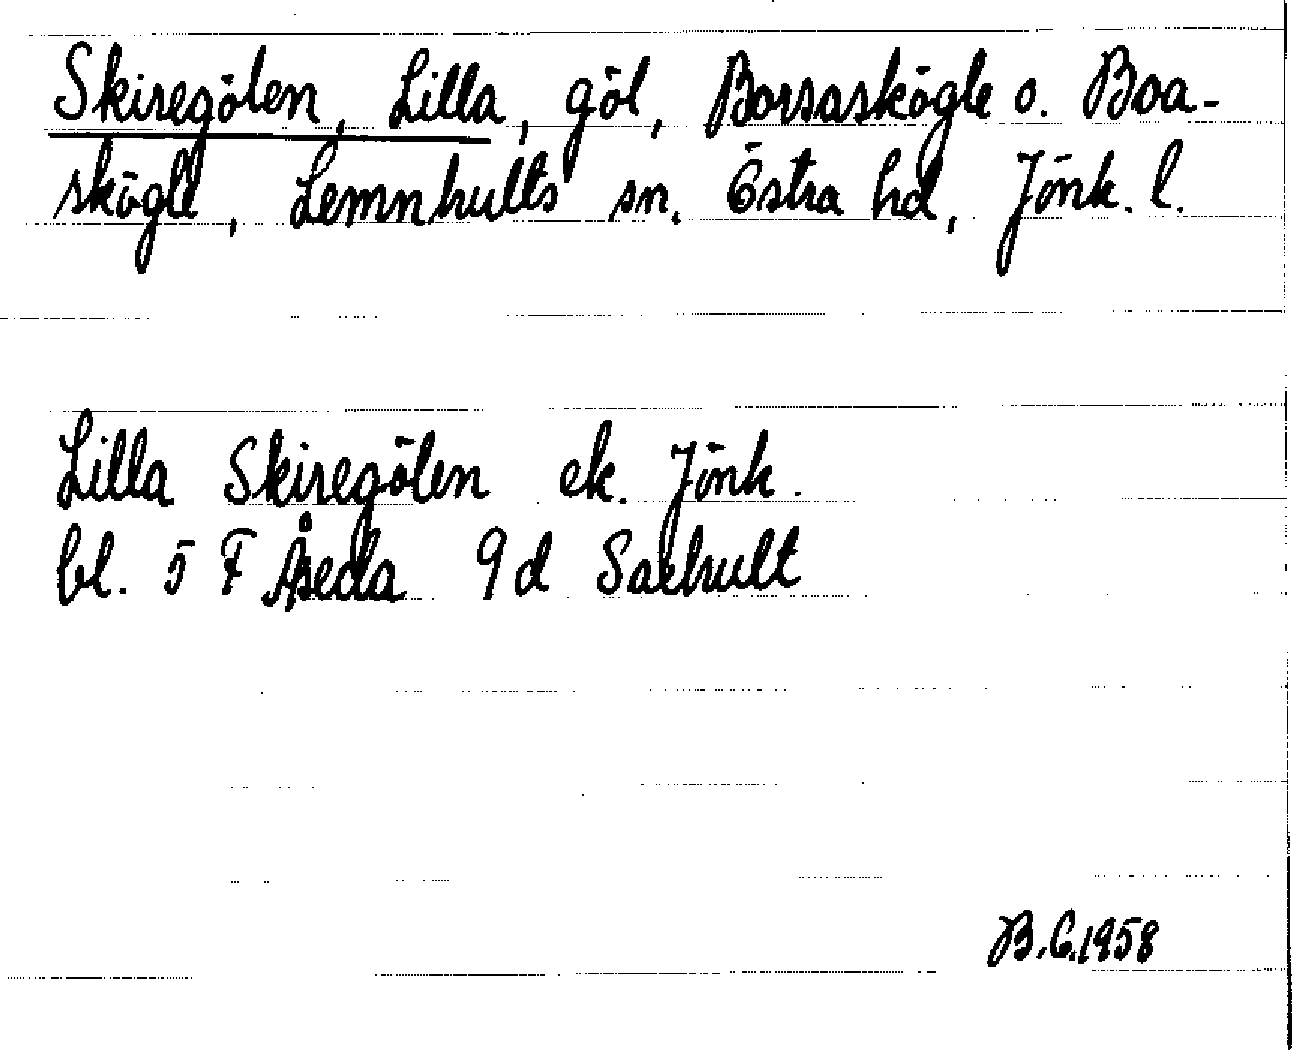 Skiregölen, Lilla, göl, Borsaskögle o. Boa-
skögle, Lemnhults sn. Östra hd, Jönk. l.
Lilla Skiregölen ek. Jönk.
bl. 5 F Åseda 9d Saxhult
B.G.1958